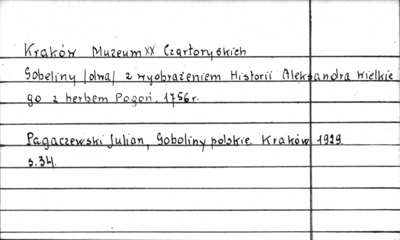 Kraków Muzeum XX Czartoryskich
Gobeliny /dwa/ z wyobrażeniem Historii Aleksandra Wielkie
go z herbem Pogoń. 1756 r.
Pagaczewski Julian, Gobeliny polskie. Kraków 1929.
s.34.